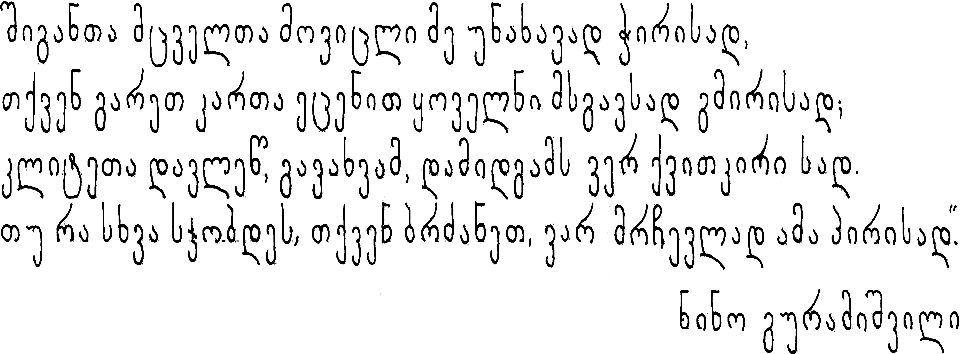 შიგანთა მცველთა მოვიცლი მე უნახავად ჭირისად,
თქვენ გარეთ კართა ეცენით ყოველნი მსგავსად გმირისად;
კლიტეთა დავლეწ, გავახვამ, დამიდგამს ვერ ქვითკირი სად.
თუ რა სხვა სჯობდეს, თქვენ ბრძანეთ, ვარ მრჩეველად ამა პირისად."
ნინო გურამიშვილი